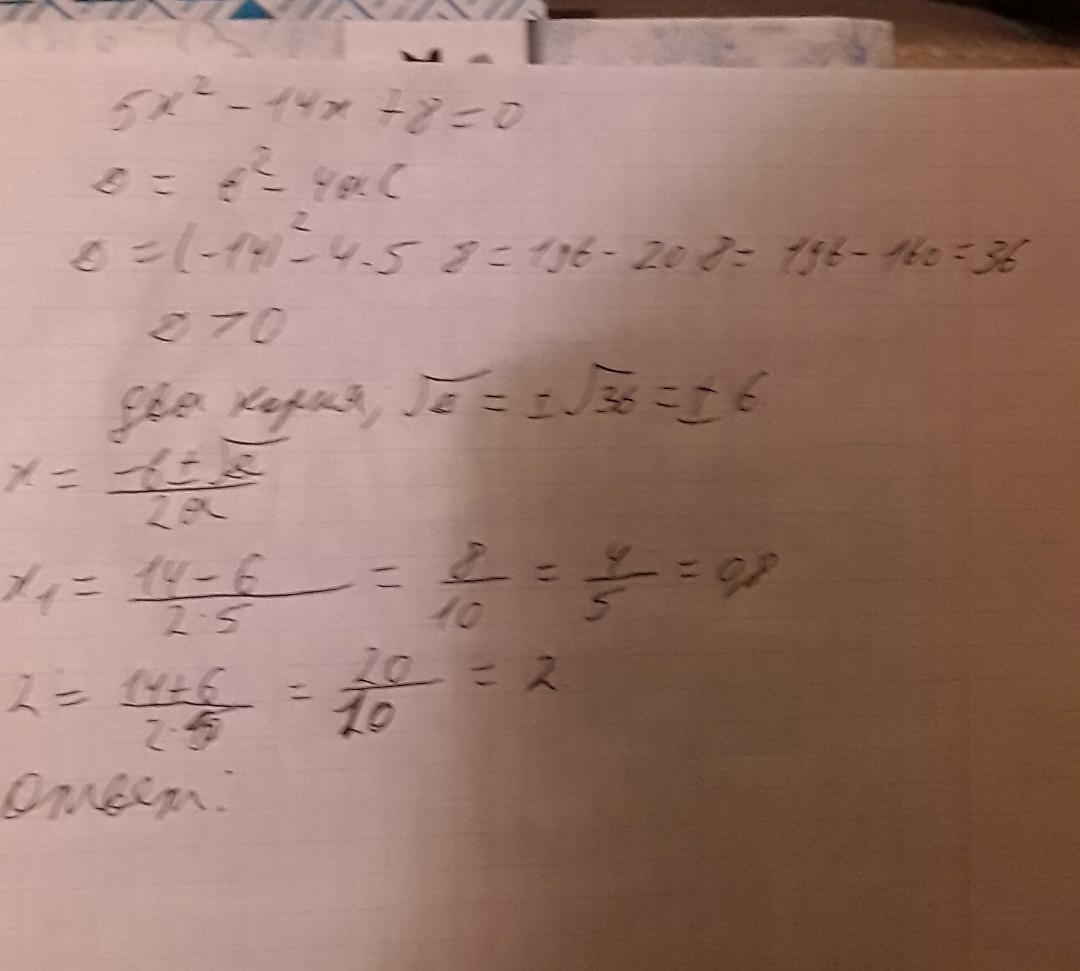 5x² - 14x + 8 = 0
D = b² - 4ac
D = (-14)² - 4·5 8 = 196 - 20 8 = 196 - 160 = 36
D > 0
два корня, √D = ± √36 = ± 6
x = (-b ± √D)/(2a)
x₁ = (14 - 6)/(2·5) = 8/10 = 4/5 = 0,8
2 = (14+6)/(2·5) = 20/10 = 2
Ответ: